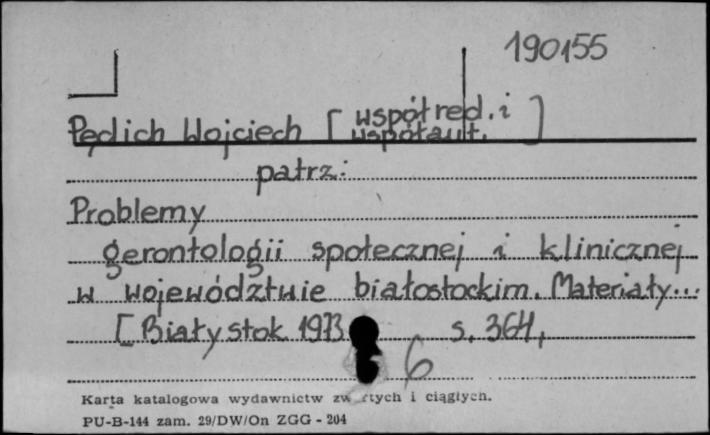 190155
Pędich Wojciech [współred. i
współaut.]
patrz:
Problemy
gerontologii społecznej i klinicznej
w województwie białostockim. Materiały...
[Białystok 1973 s. 364,
6
Karta katalogowa wydawnictw zwartych i ciągłych.
PU-B-144 zam. 29/DW/On ZGG - 204